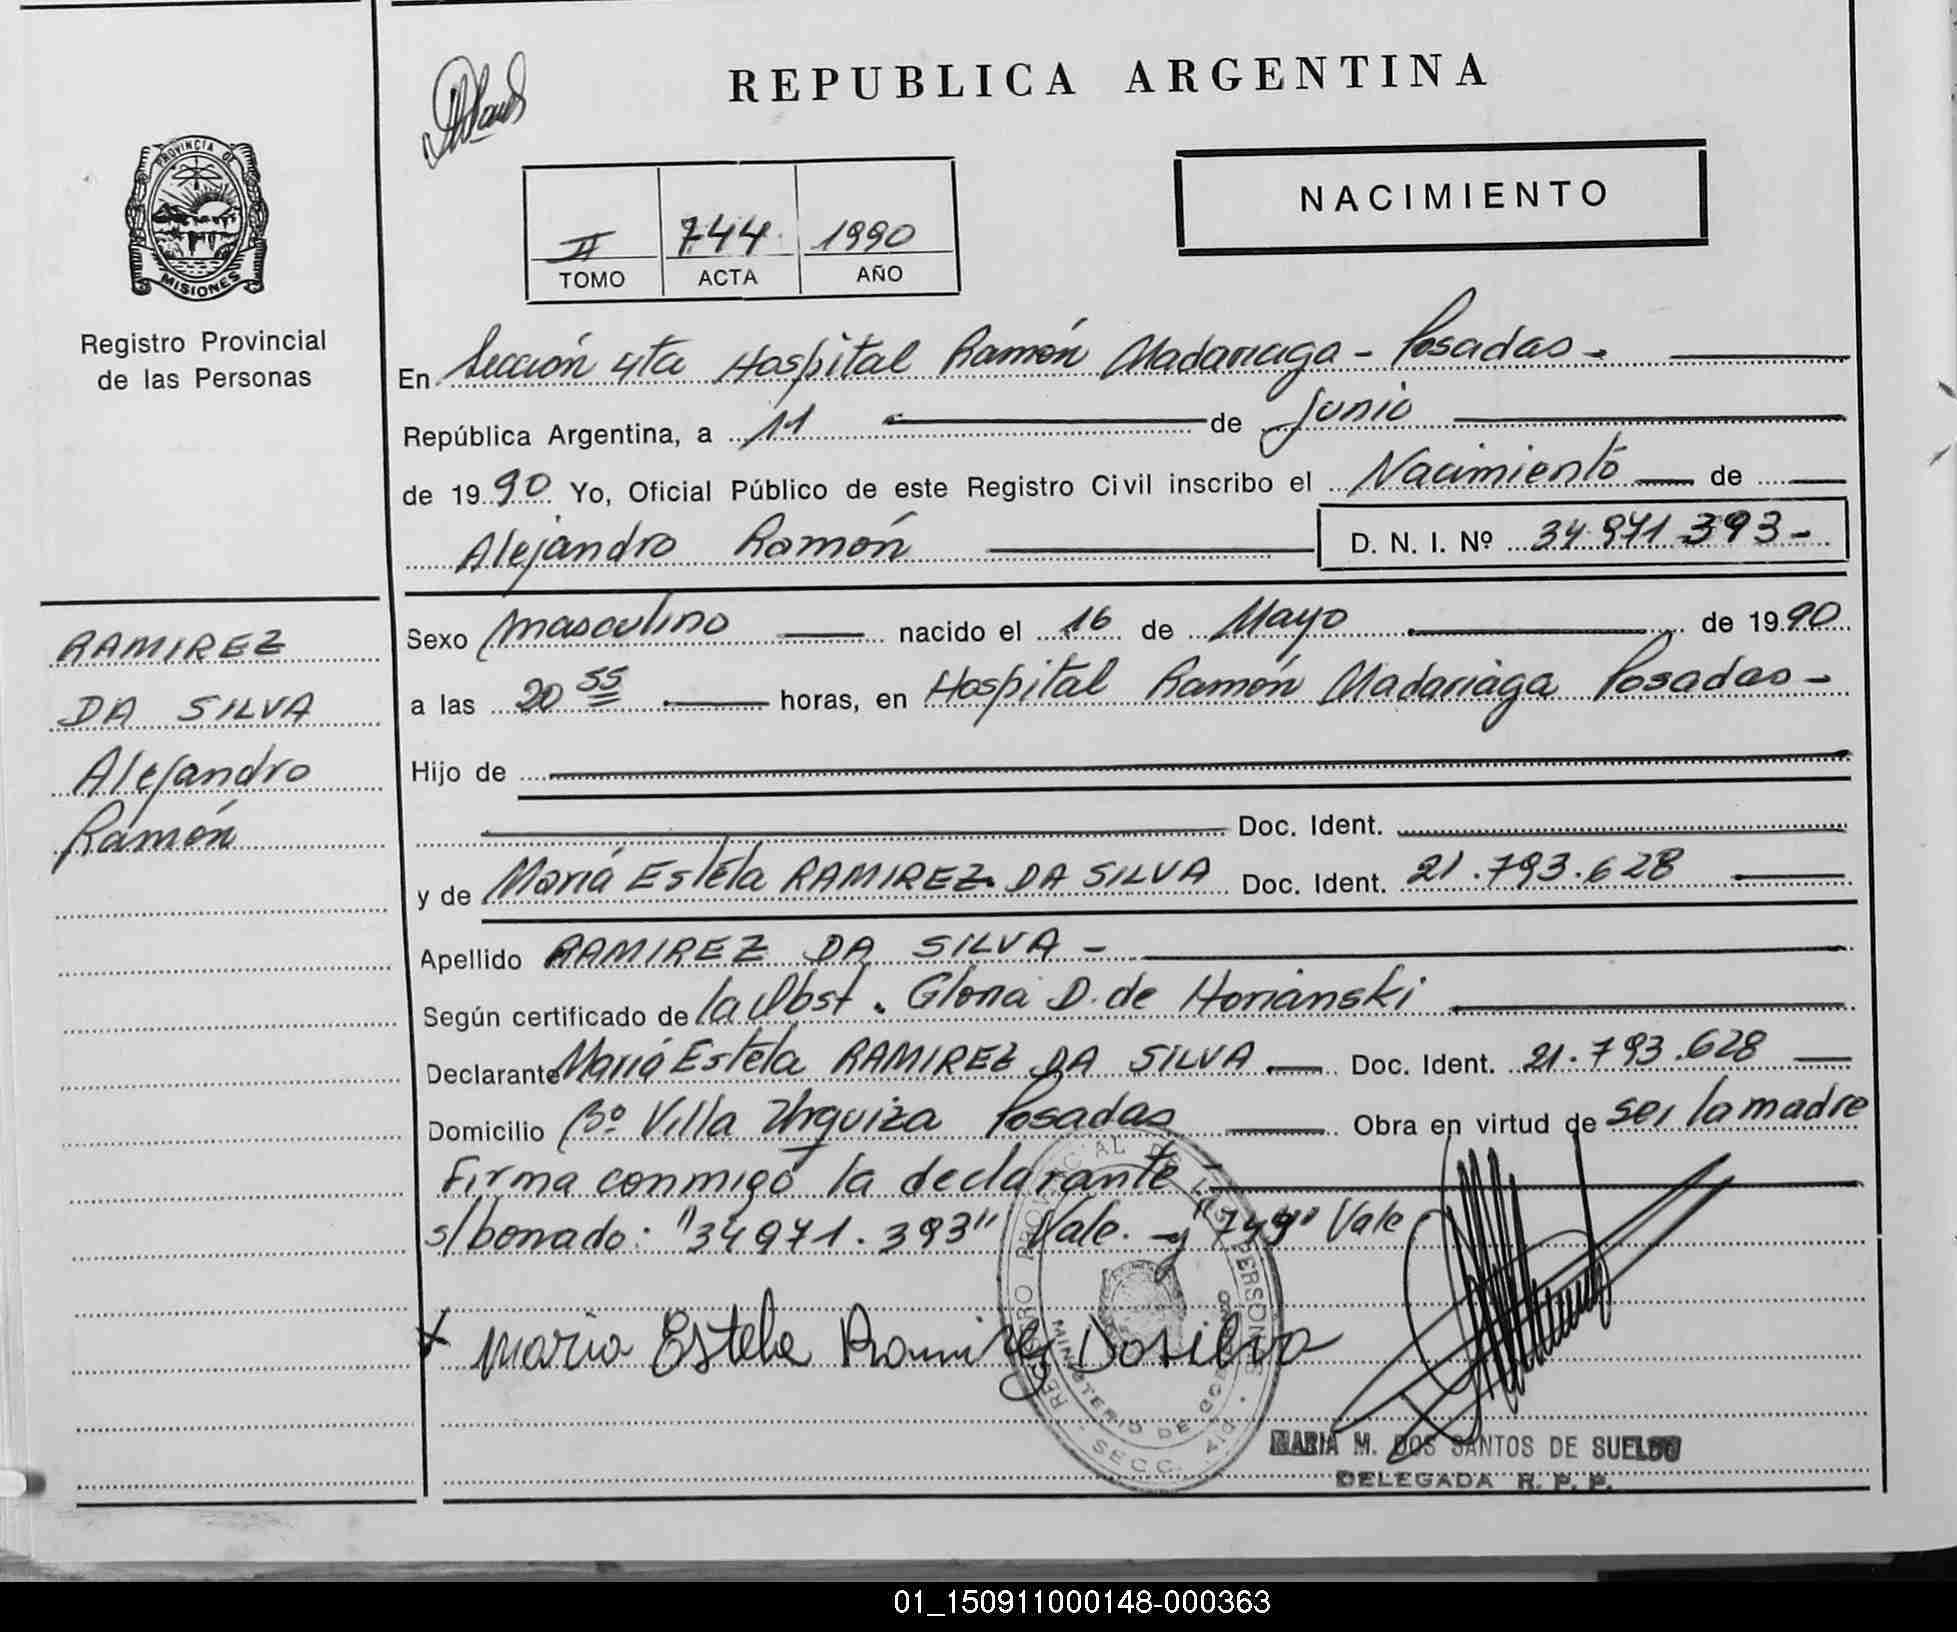 REPUBLICA ARGENTINA
PROVINCIA DE
MISIONES
Registro Provincial
de las Personas
NACIMIENTO
II 744 1990
TOMO ACTA AÑO
En Sección 4ta Hospital Ramón Madariaga - Posadas -
República Argentina, a 11 de Junio
de 1990 Yo, Oficial Público de este Registro Civil inscribo el Nacimiento de
Alejandro Ramón D. N. I. Nº 34.971.393-
RAMIREZ
DA SILVA
Alejandro
Ramón
Sexo masculino nacido el 16 de Mayo de 1990
a las 20 55 horas, en Hospital Ramón Madariaga Posadas -
Hijo de
Doc. Ident.
y de María Estela RAMIREZ DA SILVA Doc. Ident. 21.793.628
Apellido RAMIREZ DA SILVA -
Según certificado de la Obst. Gloria D. de Horianski
Declarante María Estela RAMIREZ DA SILVA Doc. Ident. 21.793.628
Domicilio Bº Villa Urquiza Posadas Obra en virtud de ser la madre
Firma conmigo la declarante
s/borrado: "34971.393" Vale. y Vale
x Maria Estela Ramirez Dasilva
REGISTRO PROVINCIAL DE LAS PERSONAS
MINISTERIO DE GOBIERNO
SECC. 4ta
MARIA M. DOS SANTOS DE SUELDO
DELEGADA R. P. P.
01_150911000148-000363